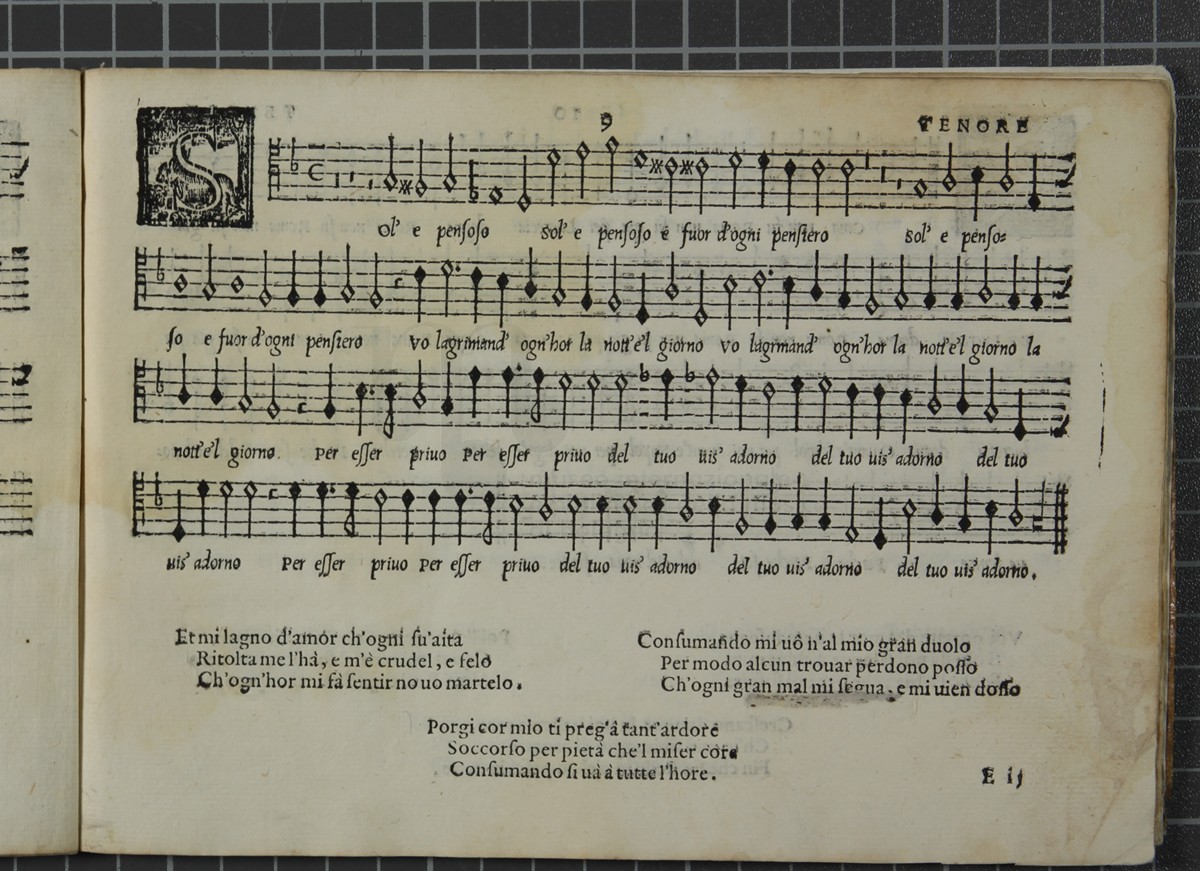 9
TENORE
S
Ol' e penſoſo ſol' e penſoſo e fuor d'ogni penſiero ſol' e penſo=
ſo e fuor d'ogni penſiero vo lagrimand' ogn'hor la nott'e'l giorno vo lagrimand' ogn'hor la nott'e'l giorno la
nott'e'l giorno. Per eſſer priuo Per eſſer priuo del tuo uis' adorno del tuo uis' adorno del tuo
uis' adorno Per eſſer priuo Per eſſer priuo del tuo uis' adorno del tuo uis' adorno del tuo uis' adorno.
Et mi lagno d'amor ch'ogni ſu'aita
Ritolta me l'hà, e m'è crudel, e felo
Ch'ogn'hor mi fà ſentir nouo martelo.
Conſumando mi uô n'al mio gran duolo
Per modo alcun trouar perdono poſſo
Ch'ogni gran mal mi ſegua, e mi uien doſſo
Porgi cor mio ti preg'â tant'ardore
Soccorſo per pietà che'l miſer core
Conſumando ſi uà â tutte l'hore.
E ij